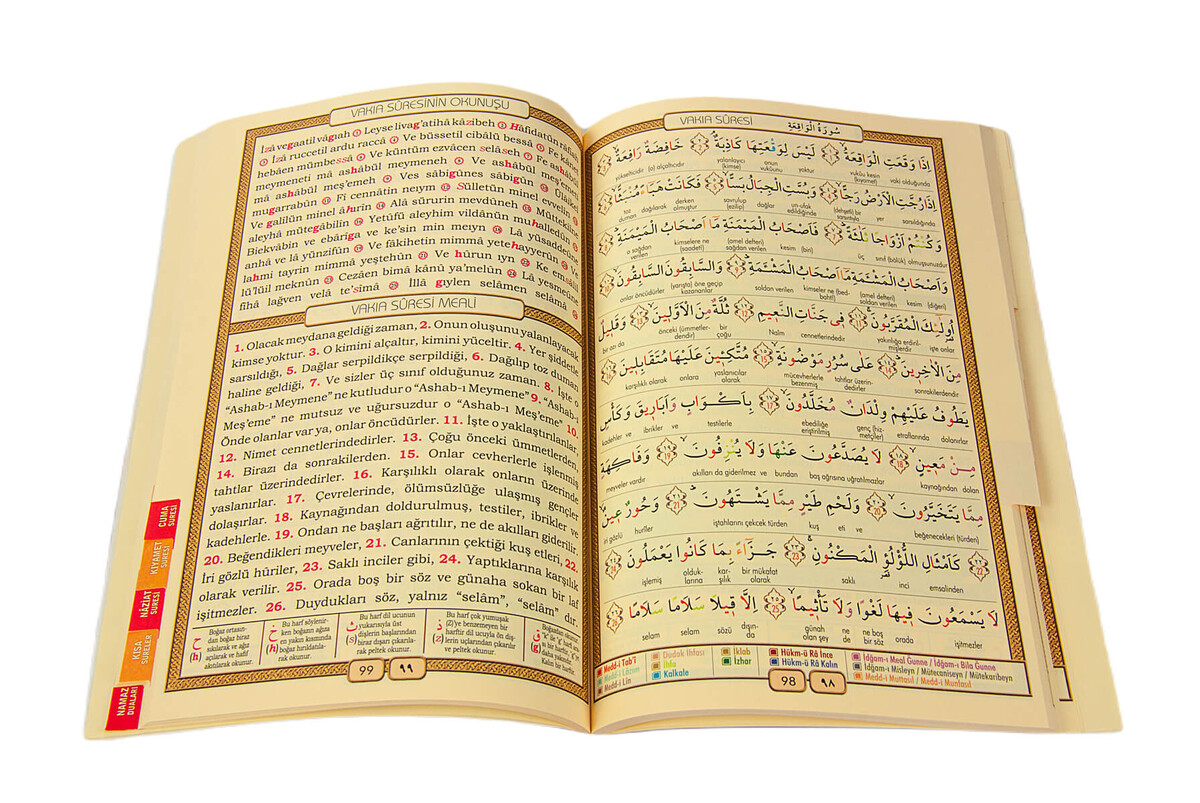 VAKIA SÛRESİNİN OKUNUŞU
İzâ vegaatil vâgıah ① Leyse livag'atihâ kâzibeh ② Hâfidatün râfiah
③ İzâ ruccetil ardu raccâ ④ Ve büssetil cibâlü bessâ ⑤ Fe kânet
hebâen münbessâ ⑥ Ve küntüm ezvâcen selâseh ⑦ Fe ashâbül
meymeneti mâ ashâbül meymeneh ⑧ Ve ashâbül meş'emeti
mâ ashâbül meş'emeh ⑨ Ves sâbigûnes sâbigûn ⑩ Ülâikel
mugarrabûn ⑪ Fî cennâtin neıym ⑫ Sülletün minel evvelîn ⑬
Ve galîlün minel âhırîn ⑭ Alâ sürurin mevdûneh ⑮ Müttekiîne
aleyhâ mütegâbilîn ⑯ Yetûfü aleyhim vildânün muhalledûn ⑰
Biekvâbin ve ebârîga ve ke'sin min meıyn ⑱ Lâ yüsaddeûne
anhâ ve lâ yünzifûn ⑲ Ve fâkihetin mimmâ yetehayyerûn ⑳ Ve
lahmi tayrin mimmâ yeştehûn ㉑ Ve hûrun ıyn ㉒ Ke emsâlil
lü'lüil meknûn ㉓ Cezâen bimâ kânû ya'melûn ㉔ Lâ yesmeûne
fîhâ lağven velâ te'sîmâ ㉕ İllâ gıylen selâmen selâmâ ㉖
VAKIA SÛRESİ MEALİ
1. Olacak meydana geldiği zaman, 2. Onun oluşunu yalanlayacak
kimse yoktur. 3. O kimini alçaltır, kimini yüceltir. 4. Yer şiddetle
sarsıldığı, 5. Dağlar serpildikçe serpildiği, 6. Dağılıp toz duman
haline geldiği, 7. Ve sizler üç sınıf olduğunuz zaman. 8. İşte o
"Ashab-ı Meymene" ne kutludur o "Ashab-ı Meymene" 9. "Ashab-ı
Meş'eme" ne mutsuz ve uğursuzdur o "Ashab-ı Meş'eme" 10.
Önde olanlar var ya, onlar öncüdürler. 11. İşte o yaklaştırılanlar,
12. Nimet cennetlerindedirler. 13. Çoğu önceki ümmetlerden,
14. Birazı da sonrakilerden. 15. Onlar cevherlerle işlenmiş
tahtlar üzerindedirler. 16. Karşılıklı olarak onların üzerinde
yaslanırlar. 17. Çevrelerinde, ölümsüzlüğe ulaşmış gençler
dolaşırlar. 18. Kaynağından doldurulmuş, testiler, ibrikler ve
kadehlerle. 19. Ondan ne başları ağrıtılır, ne de akılları giderilir.
20. Beğendikleri meyveler, 21. Canlarının çektiği kuş etleri, 22.
İri gözlü hûriler, 23. Saklı inciler gibi, 24. Yaptıklarına karşılık
olarak verilir. 25. Orada boş bir söz ve günaha sokan bir laf
işitmezler. 26. Duydukları söz, yalnız "selâm", "selâm" dır.
ح (h) Boğaz ortasından boğaz biraz sıkılarak ve ağız açılarak ve hafif kısılarak okunur.
خ (h) Bu harf söylenirken boğazın ağıza en yakın kısmında boğaz hırıldatılarak okunur.
ث (s) Bu harf dil ucunun yukarısıyla üst dişlerin başlarından biraz dışarı çıkarılarak peltek okunur.
ذ (z) Bu harf çok yumuşak (Z)'ye benzemeyen bir harftir dil ucuyla ön dişlerin uçlarından çıkarılır ve peltek okunur.
ق (g)
99 ٩٩
CUMA SURESİ
KIYAMET SURESİ
NÂZİAT SURESİ
KISA SÛRELER
NAMAZ DUALARI
VAKIA SÛRESİ سُورَةُ الْوَاقِعَةِ
اِذَا وَقَعَتِ الْوَاقِعَةُ ۙ ١ لَيْسَ لِوَقْعَتِهَا كَاذِبَةٌ ۢ ٢ خَافِضَةٌ رَافِعَةٌ ۙ ٣
yükselticidir (o) alçaltıcıdır yalanlayıcı (kimse) onun vukûunu yoktur vukûu kesin (kıyamet) vaki olduğunda
اِذَا رُجَّتِ الْاَرْضُ رَجًّا ۙ ٤ وَبُسَّتِ الْجِبَالُ بَسًّا ۙ ٥ فَكَانَتْ هَبَاءً مُنْبَثًّا ۙ ٦
toz duman dağılarak derken olmuştur savrulup (ezilip) dağlar un-ufak edildiğinde (dehşetli) bir sarsıntıyla yer sarsıldığında
وَكُنْتُمْ اَزْوَاجًا ثَلٰثَةً ۜ ٧ فَاَصْحَابُ الْمَيْمَنَةِ مَٓا اَصْحَابُ الْمَيْمَنَةِ ۜ ٨
o sağdan verilen kimselere ne (saadet!) (amel defteri) sağdan verilen kesim (biri) üç sınıf (bölük) olmuşsunuzdur
وَاَصْحَابُ الْمَشْـَٔمَةِ مَٓا اَصْحَابُ الْمَشْـَٔمَةِ ۜ ٩ وَالسَّابِقُونَ السَّابِقُونَ ۙ ١٠
onlar öncüdürler (yarışta) öne geçip kazananlar soldan verilen kimseler ne (bedbaht!) (amel defteri) soldan verilen kesim (diğeri)
اُو۬لٰٓئِكَ الْمُقَرَّبُونَ ۚ ١١ فِى جَنَّاتِ النَّعِيمِ ١٢ ثُلَّةٌ مِنَ الْاَوَّلِينَ ۙ ١٣ وَقَلِيلٌ
bir azı da önceki (ümmetlerdendir) bir çoğu Naîm cennetlerindedir yakınlığa erdirilmişlerdir işte onlar
مِنَ الْاٰخِرِينَ ۜ ١٤ عَلٰى سُرُرٍ مَوْضُونَةٍ ۙ ١٥ مُتَّكِـِٔينَ عَلَيْهَا مُتَقَابِلِينَ ١٦
karşılıklı olarak onlara yaslanıcılar olarak mücevherlerle bezenmiş tahtlar üzerindedirler sonrakilerdendir
يَطُوفُ عَلَيْهِمْ وِلْدَانٌ مُخَلَّدُونَ ۙ ١٧ بِاَكْوَابٍ وَاَبَارِيقَ وَكَأْسٍ
kadehler ve ibrikler ve testilerle ebediliğe eriştirilmiş genç (hizmetçiler) etraflarında dolanırlar
مِنْ مَعِينٍ ۙ ١٨ لَا يُصَدَّعُونَ عَنْهَا وَلَا يُنْزِفُونَ ۙ ١٩ وَفَاكِهَةٍ
meyveler vardır akılları da giderilmez ve bundan baş ağrısına uğratılmazlar kaynağından dolan
مِمَّا يَتَخَيَّرُونَ ۙ ٢٠ وَلَحْمِ طَيْرٍ مِمَّا يَشْتَهُونَ ۜ ٢١ وَحُورٌ عِينٌ ۙ
iri gözlü hurîler iştahlarını çekcek türden kuş eti ve beğenecekleri (türden)
٢٢ كَاَمْثَالِ اللُّؤْلُؤِ الْمَكْنُونِ ۚ ٢٣ جَزَٓاءً بِمَا كَانُوا يَعْمَلُونَ ٢٤
işlemiş olduklarına karşılık bir mükafat olarak saklı inci emsalinden
لَا يَسْمَعُونَ فِيهَا لَغْوًا وَلَا تَأْثِيمًا ۙ ٢٥ اِلَّا قِيلًا سَلَامًا سَلَامًا ٢٦
selam selam sözü dışında günah olan şey de ne ne boş bir söz orada işitmezler
Medd-i Tab'î Dudak İhfası İklab Hükm-ü Râ İnce İdğam-ı Meal Gunne / İdğam-ı Bila Gunne
Medd-i Lâzım İhfa İzhar Hükm-ü Râ Kalın İdğam-ı Misleyn / Mütecaniseyn / Mütekaribeyn
Medd-i Lin Kalkale Medd-i Muttasıl / Medd-i Munfasıl
98 ٩٨